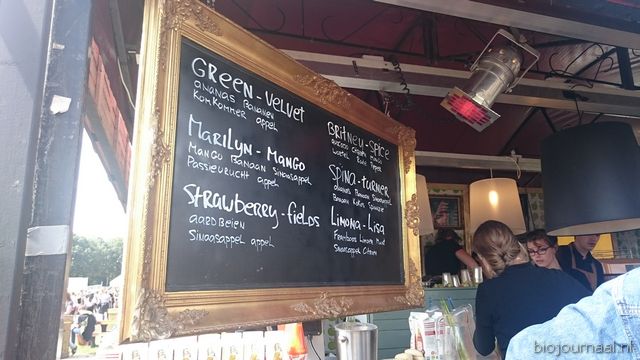 GREEN-VELVET
ANANAS BANANEN
KOMKOMMER appel
MARILYN-MANGO
MANGO BANAAN SINAASAPPEL
PASSIEVRUCHT appel
STRAWBERRY-fields
AARDBEIEN
SINAASAPPEL appel
BRITNEY-SPICE
WORTEL
SPINA-TURNER
BANAAN
LIMONA-LISA
FRAMBOOS LIMOEN MUNT
SINAASAPPEL CITROEN
biojournaal.nl